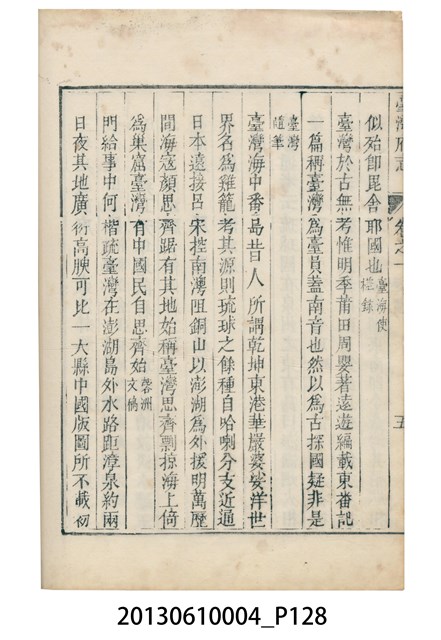 臺灣府志 卷之一 五
似殆即毘舍耶國也 臺海使槎錄
臺灣於古無考惟明季莆田周嬰著遠遊編載東番記
一篇稱臺灣為臺員蓋南音也然以為古探國疑非是
臺灣隨筆
臺灣海中番島昔人所謂乾坤東港華嚴婆娑洋世
界名為雞籠考其源則琉球之餘種自哈喇分支近通
日本遠接呂宋控南澳阻銅山以澎湖為外援明萬歷
間海寇顏思齊踞有其地始稱臺灣思齊剽掠海上倚
為巢窟臺灣有中國民自思齊始 蓉洲文稿
門給事中何楷疏臺灣在澎湖島外水路距漳泉約兩
日夜其地廣衍高腴可比一大縣中國版圖所不載初
20130610004_P128